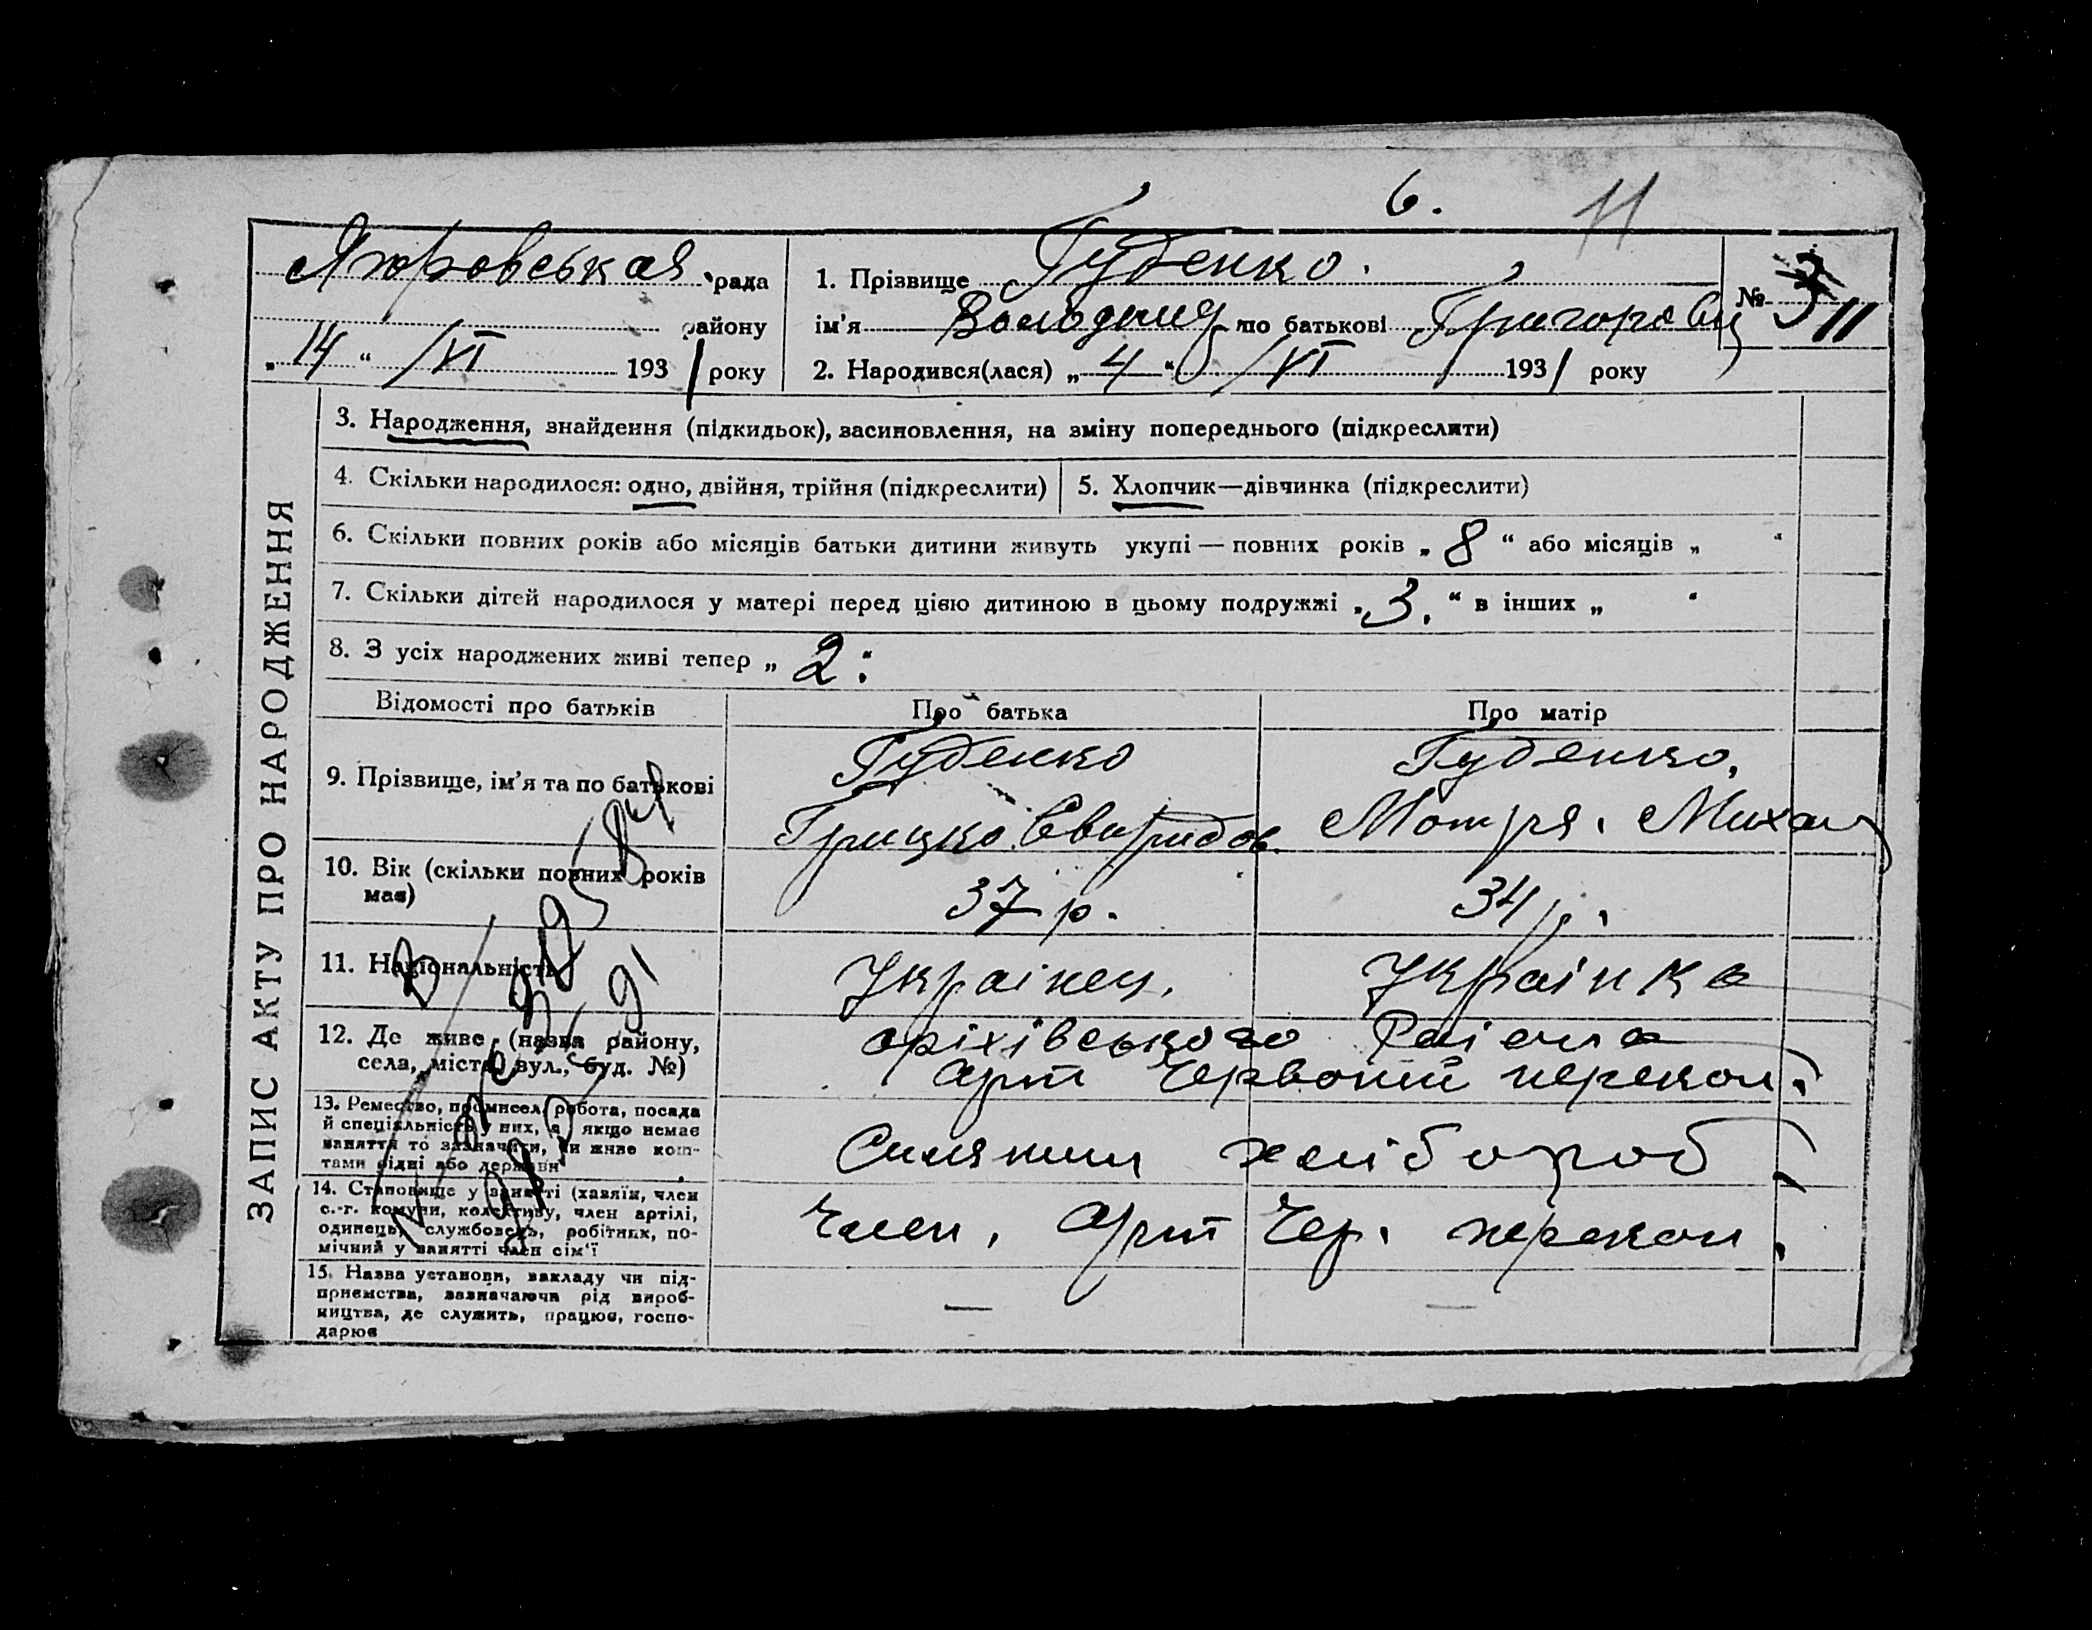 6. 11
рада 1. Прізвище Гуденко. №
району ім'я Володимир по батькові Григорович 11
„ 14 “ /VI 1931 року 2. Народився(лася) „ 4 “ /VI 1931 року
ЗАПИС АКТУ ПРО НАРОДЖЕННЯ
3. Народження, знайдення (підкидьок), засиновлення, на зміну попереднього (підкреслити)
4. Скільки народилося: одно, двійня, трійня (підкреслити) 5. Хлопчик—дівчинка (підкреслити)
6. Скільки повних років або місяців батьки дитини живуть укупі — повних років „ 8 “ або місяців „ “
7. Скільки дітей народилося у матері перед цією дитиною в цьому подружжі „ 3. “ в інших „ “
8. З усіх народжених живі тепер „ 2 “
Відомості про батьків Про батька Про матір
9. Прізвище, ім'я та по батькові
Гуденко Гуденко,
Грицко Свиридов. Мотря. Михай
10. Вік (скільки повних років
має)
37 р. 34 р.
11. Національність Украінец. Украінка
12. Де живе (назва району,
села, міста, вул., буд. №)
оріхівського Раіона
Арт Червоний перекоп.
13. Ремество, промисел, робота, посада
й спеціяльність у них, а якщо немає
заняття то зазначити, чи живе кош-
тами рідні або держави
хлібороб
14. Становище у занятті (хазяїн, член
с.-г. комуни, колективу, член артілі,
одинець, службовець, робітник, по-
мічний у занятті член сім'ї
Член, Арт Чер. перекоп.
15. Назва установи, закладу чи під-
приємства, зазначаючи рід вироб-
ництва, де служить, працює, госпо-
дарює
— —